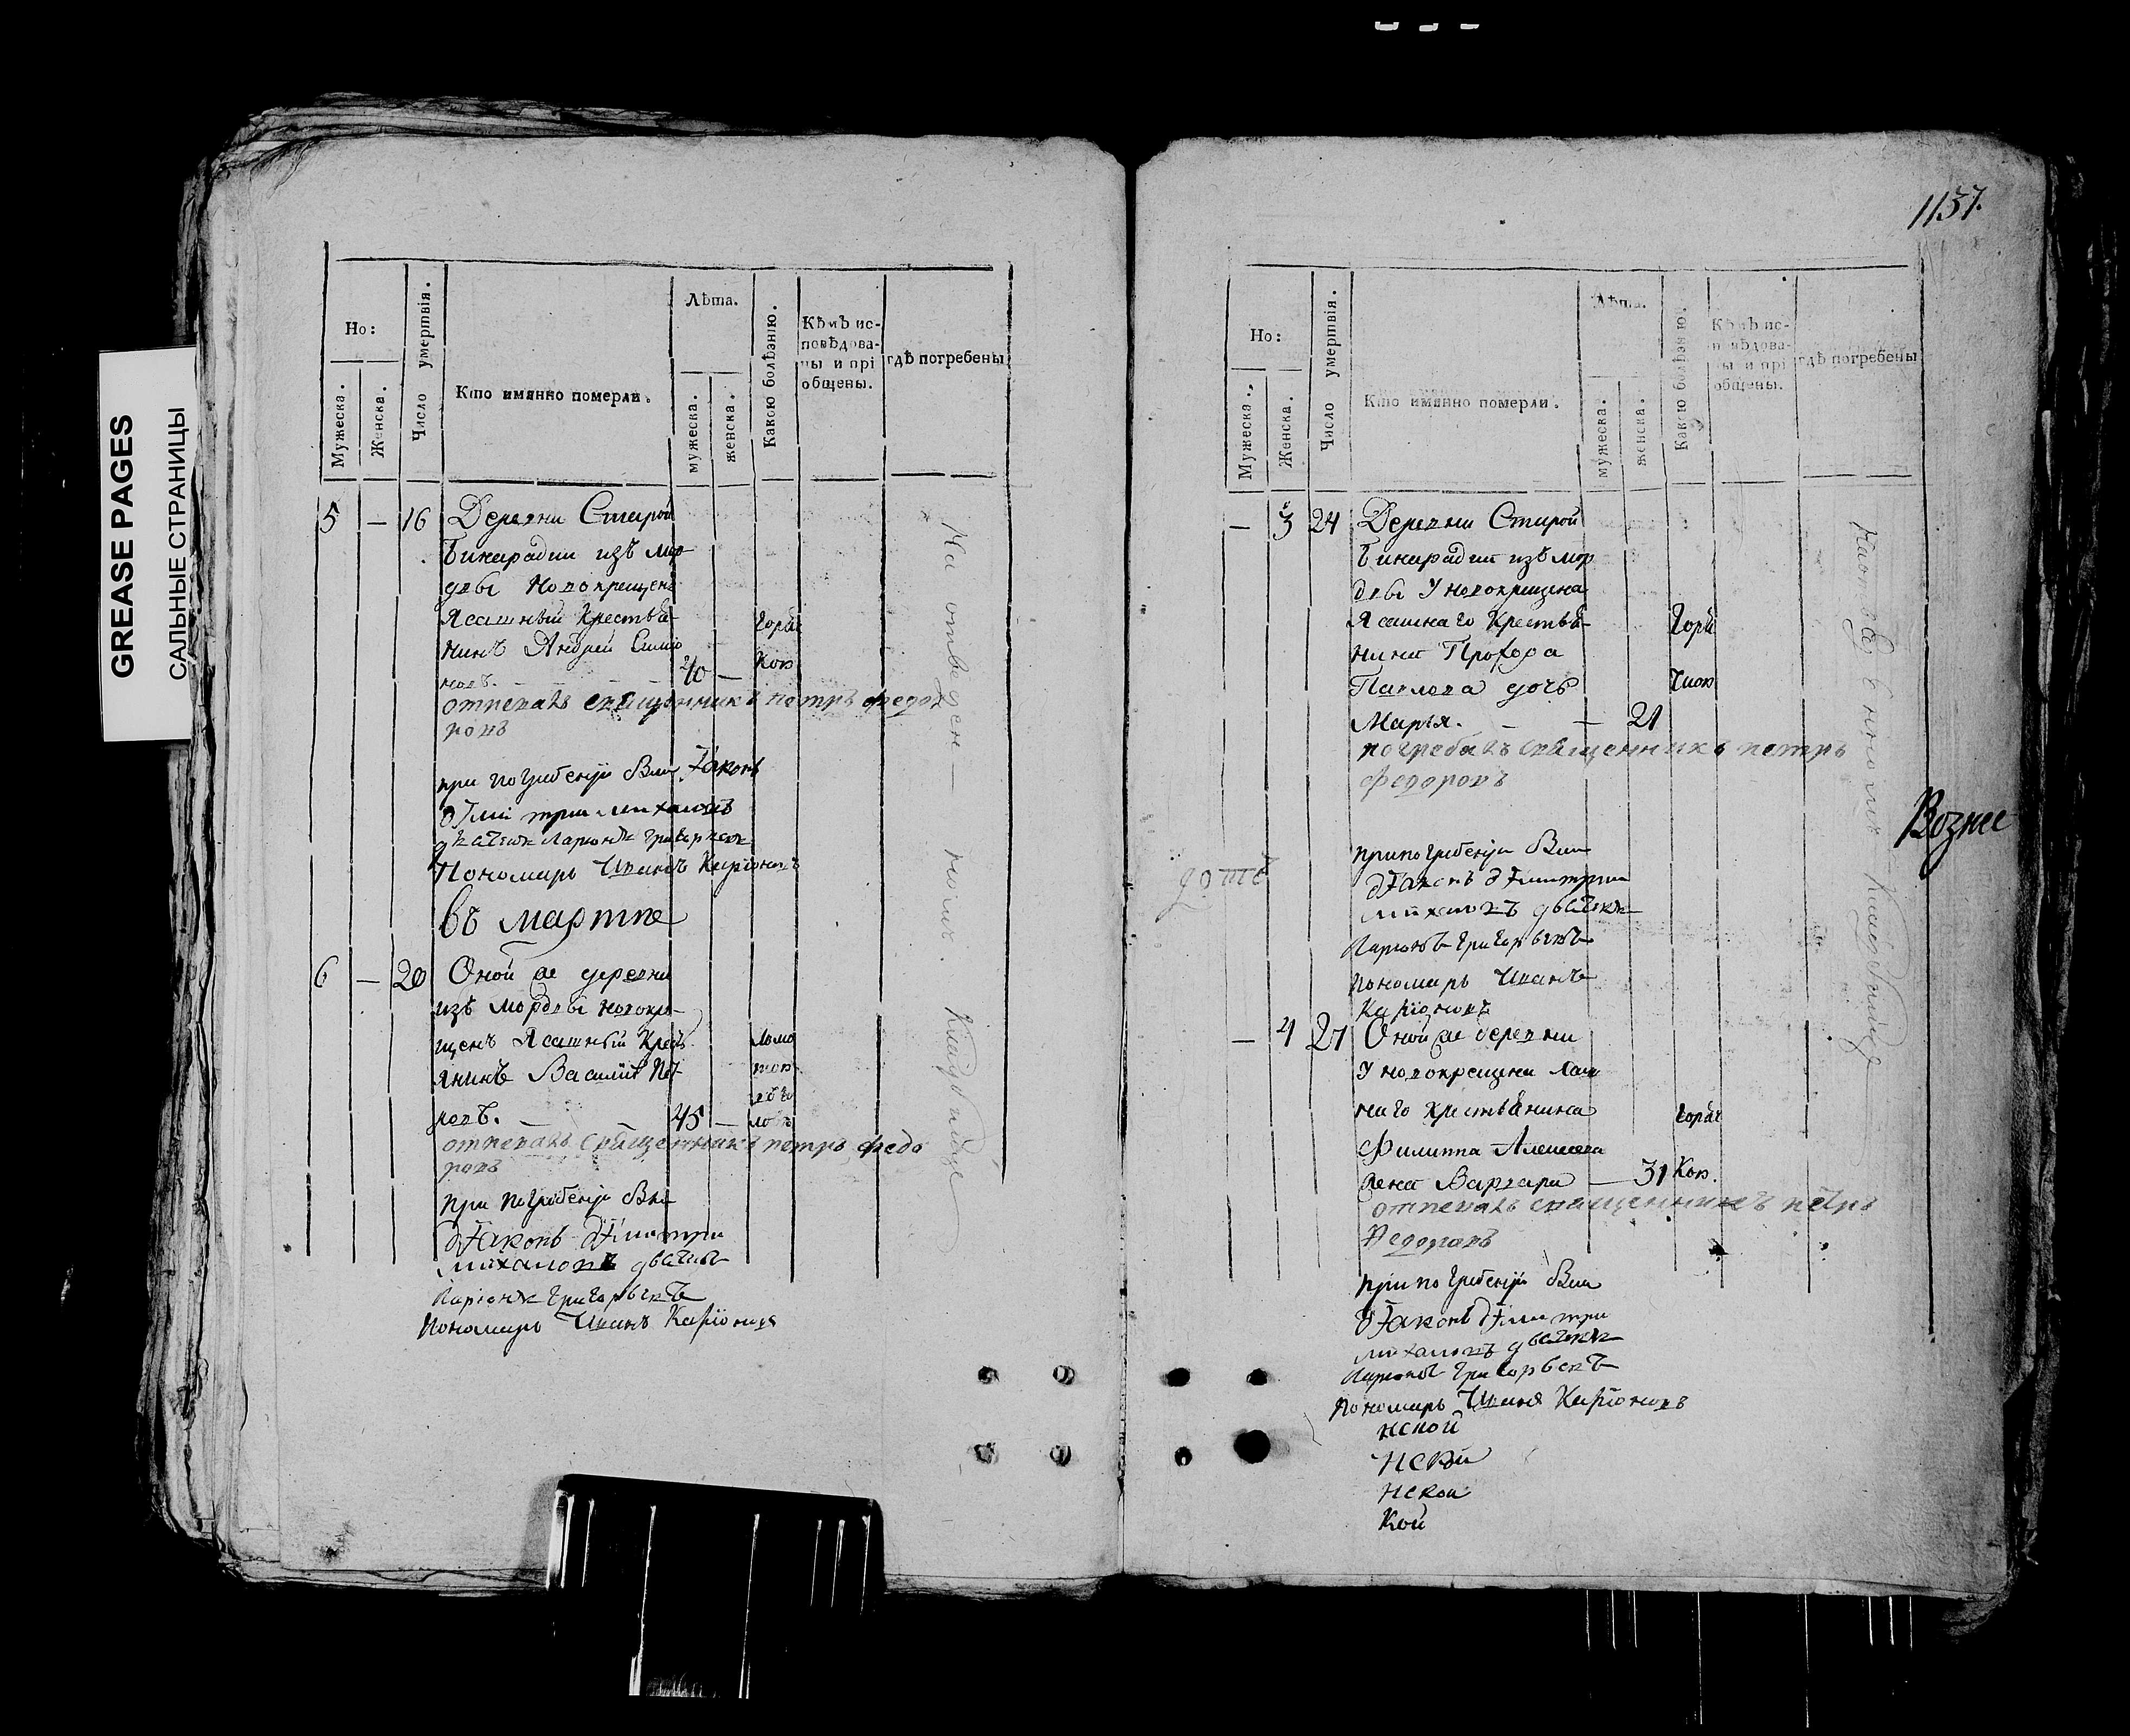 GREASE PAGES
САЛЬНЫЕ СТРАНИЦЫ
Но:
Мужеска.
Женска.
Число умертвія.
Кто имянно померли.
Лѣта.
мужеска.
женска.
Какою болѣзнію.
Кѣмъ ис-
повѣдова-
ны и прі
общены.
гдѣ погребены
5 — 16 Деревни Старой
Бинарадки изъ мор
двы новокрещенъ
Ясашный Крестья-
нинъ Андрей Симіо
новъ. — 40 —
Горяч
Кою
отпевалъ священникъ петръ федо
ровъ
при погребеніи Были діаконъ
дімитри михаловъ
дьячекъ Ларионъ григорьевъ
Пономарь Иванъ Каріоновъ
въ мартѣ
6 — 20 Оной же деревни
изъ мордвы новокре
щенъ Ясашный Крес
янинъ Василій Пет
ровъ. — 45 —
ломо
тою
отпевалъ священникъ петръ федо
ровъ
при погребеніи Были
діаконъ дімитри
михаловъ дьячекъ
Ларіонъ григорьевъ
Пономарь Иванъ Каріоновъ
На отведен— номъ. Кладбище
1137.
Но:
Мужеска.
Женска.
Число умертвія.
Кто имянно померли.
Лѣта.
мужеска.
женска.
Какою болѣзнію.
Кѣмъ ис-
повѣдова-
ны и прі
общены.
гдѣ погребены
— 3 24 Деревни Старой
Бинарадки изъ мор
двы У новокрещена
Ясашнаго Крестья-
нина Прохора
Павлова дочь
Марья. — — 21
Горя
чкою
погребалъ священникъ петръ
федоровъ
при погребеніи Были
діаконъ дімитрии
михаловъ дьячекъ
Ларионъ григорьевъ
пономарь Иванъ
Каріоновъ
— 4 27 Оной же деревни
У новокрещена Ясаш
наго крестьянина
Филиппа Алексеева
жена Варвара — 31
Горяч
Кою.
отпевалъ священникъ петръ
Федоровъ
при погребеніи Были
діаконъ дімитри
михаловъ дьячекъ
Ларионъ григорьевъ
пономарь Иванъ Каріоновъ
нской
нской
нской
кой
Возне